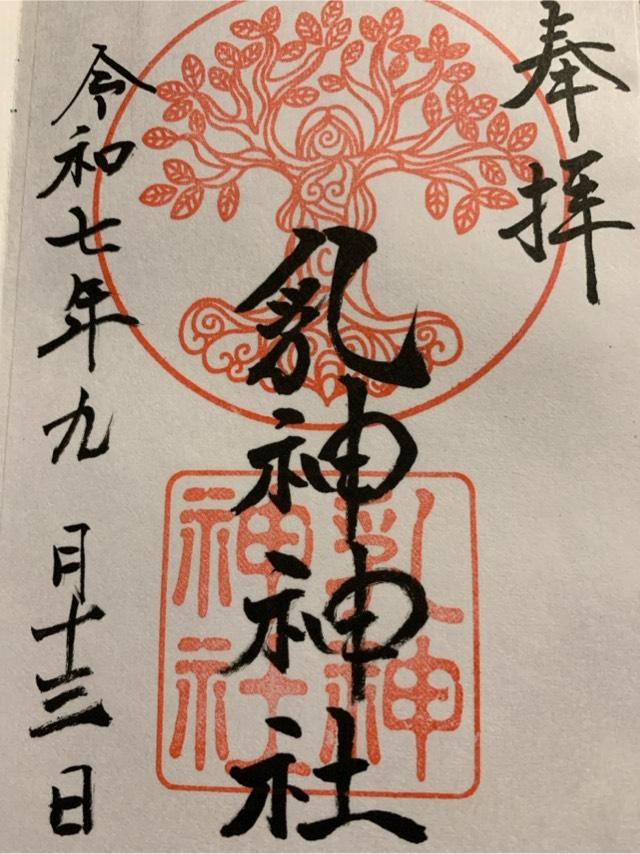 奉拝
乳神神社
令和七年九月十三日
乳神
神社